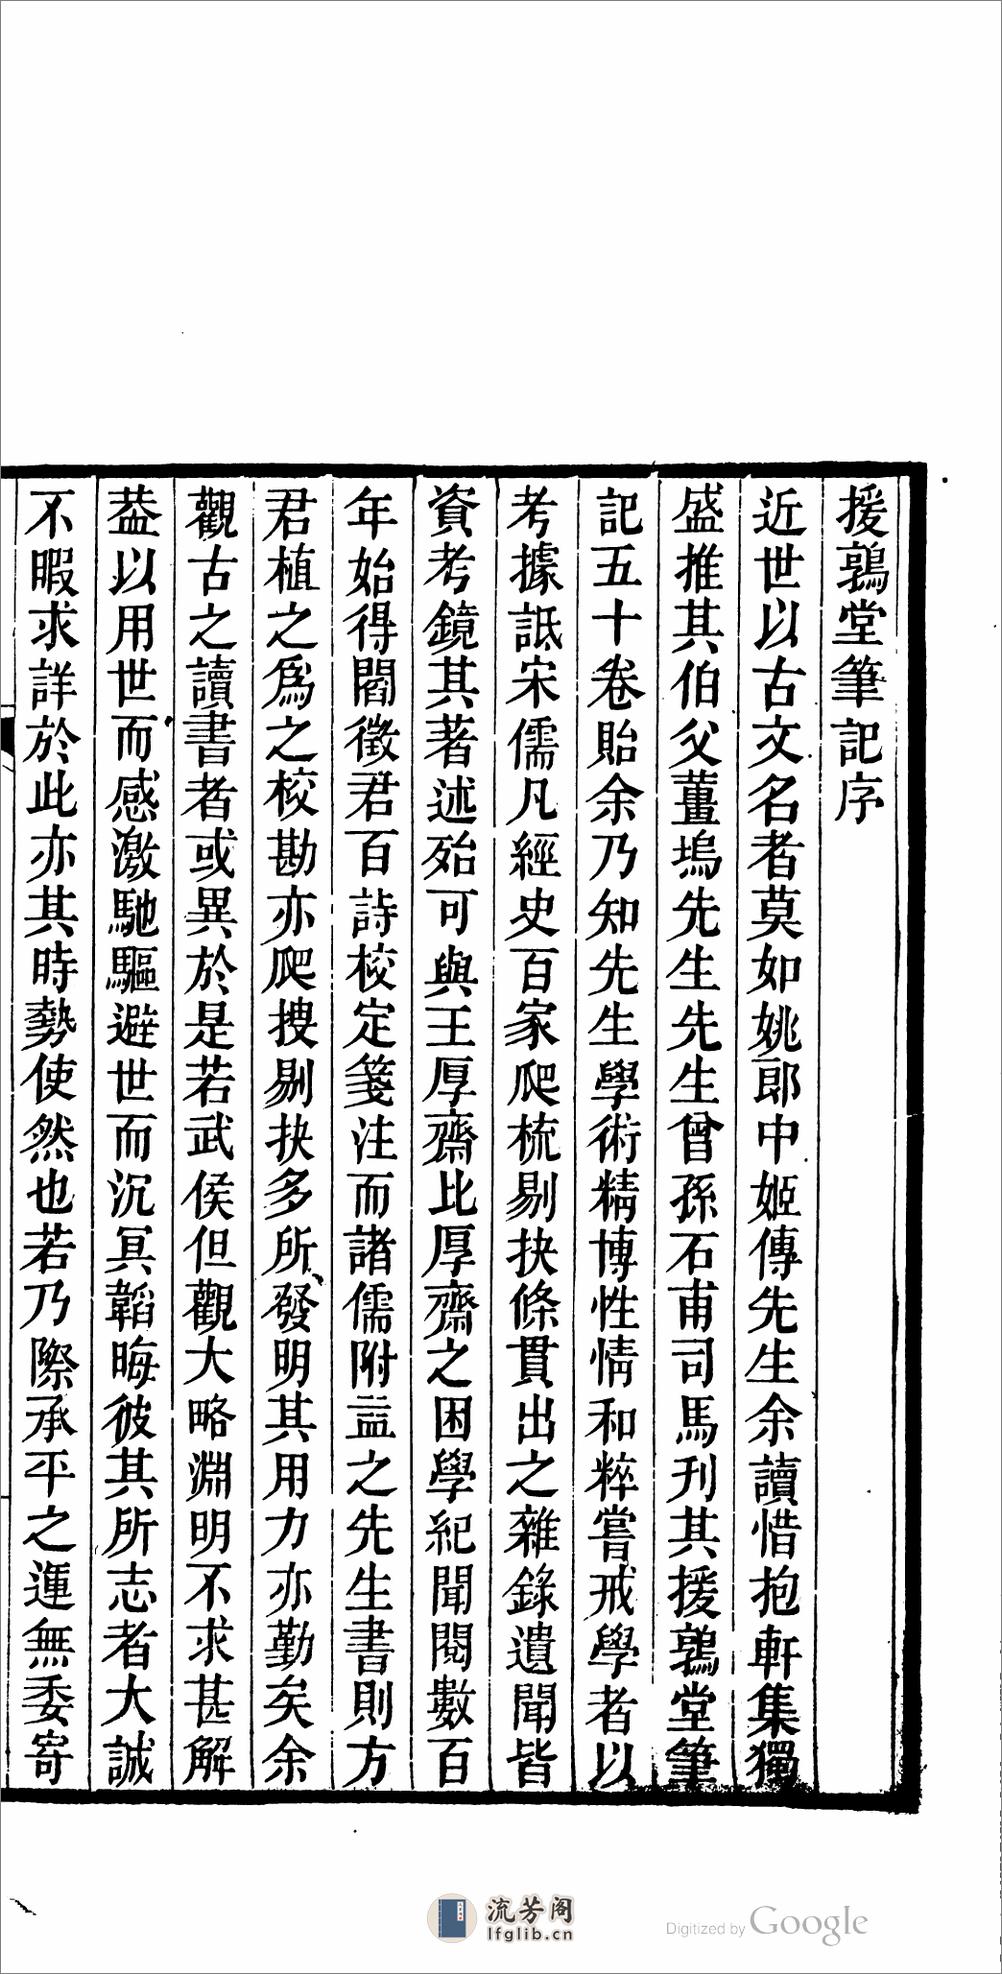 援鶉堂筆記序
近世以古文名者莫如姚郎中姬傳先生余讀惜抱軒集獨
盛推其伯父薑塢先生先生曾孫石甫司馬刊其援鶉堂筆
記五十卷貽余乃知先生學術精博性情和粹嘗戒學者以
考據詆宋儒凡經史百家爬梳剔抉條貫出之雜錄遺聞皆
資考鏡其著述殆可與王厚齋比厚齋之困學紀聞閱數百
年始得閻徵君百詩校定箋注而諸儒附益之先生書則方
君植之爲之校勘亦爬搜剔抉多所發明其用力亦勤矣余
觀古之讀書者或異於是若武侯但觀大略淵明不求甚解
葢以用世而感激馳驅避世而沉冥韜晦彼其所志者大誠
不暇求詳於此亦其時勢使然也若乃際承平之運無委寄
流芳阁
lfglib.cn
Digitized by Google